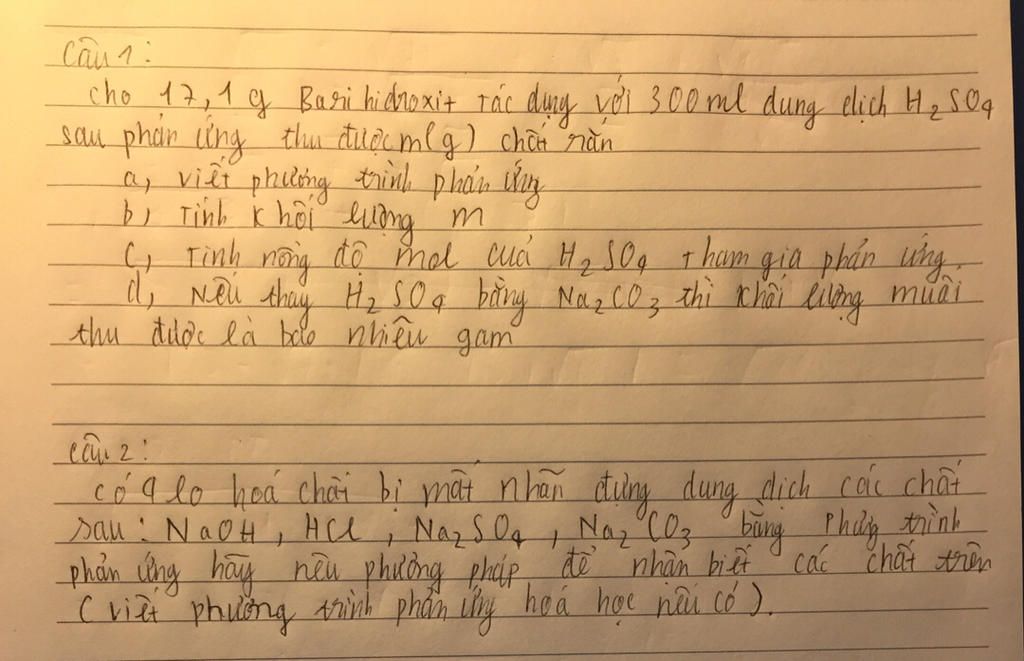 Câu 1:
cho 17,1 g Bari hidroxit tác dụng với 300ml dung dịch H₂SO₄
sau phản ứng thu được m(g) chất rắn
a, viết phương trình phản ứng
b, Tính khối lượng m
c, Tính nồng độ mol của H₂SO₄ tham gia phản ứng.
d, Nếu thay H₂SO₄ bằng Na₂CO₃ thì khối lượng muối
thu được là bao nhiêu gam
Câu 2:
có 4 lo hoá chất bị mất nhãn đựng dung dịch các chất
sau: NaOH, HCl, Na₂SO₄, Na₂CO₃ bằng trình
phản ứng hãy nêu phương pháp để nhận biết các chất trên
(viết phương trình phản ứng hoá học nếu có).